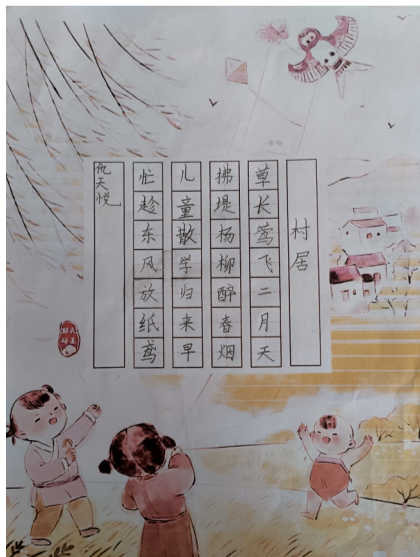 村居
草长莺飞二月天
拂堤杨柳醉春烟
儿童散学归来早
忙趁东风放纸鸢
天悦